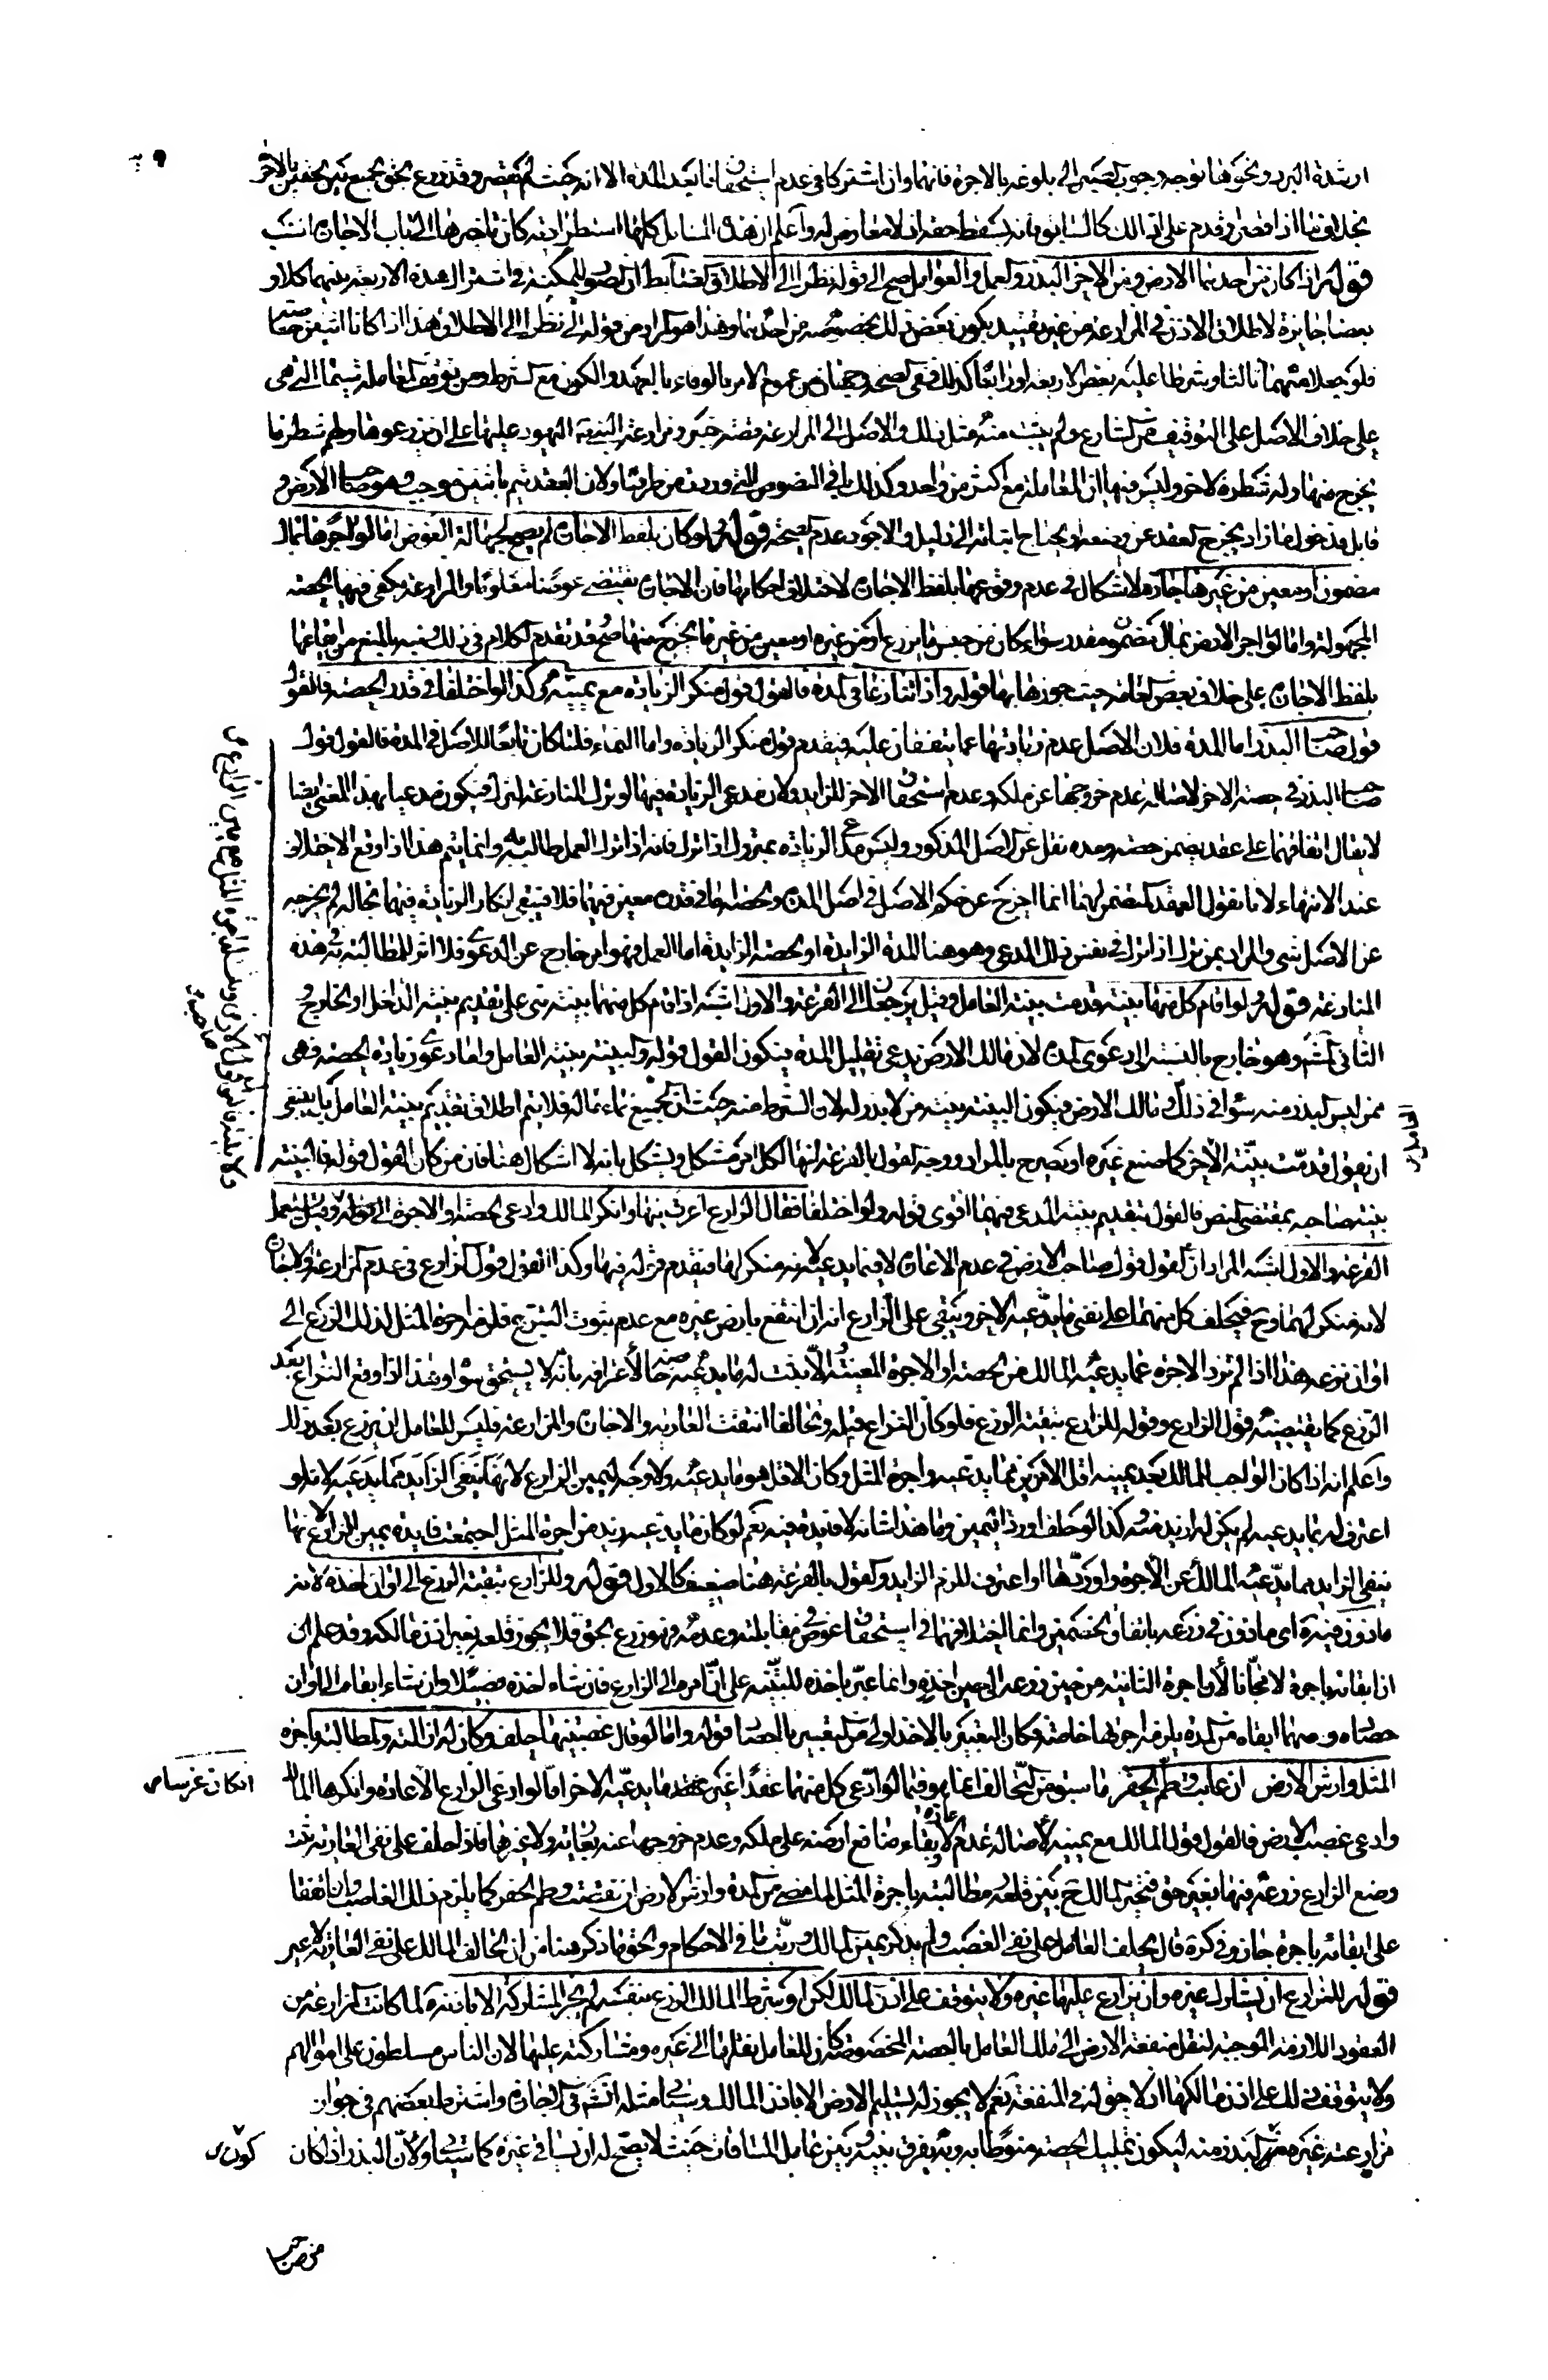 او شدة البرد ونحوهما توجه وجوب الصبر إلى بلوغه بالاجرة فانهما وان اشتركا في عدم استحقاق ما بعد المدة الا انه حيث لم يقصر وقد زرع بحق يجمع بين الحقين بالاجرة
بخلاف ما اذا قصر وقدم على ذلك كالسابق فانه يسقط حقه اذ لا معارض له واعلم ان هذه المسايل كلها استطرادية كان تاخيرها الى باب الاجارة انسب
قوله اذا كان من احدهما الارض ومن الاخر البذر والعمل والعوامل صح الى قوله نظرا الى الاطلاق الضابط ان الصور الممكنة في اشتراك هذه الاربعة بينهما كلا او
بعضا جايزة لاطلاق الاذن في المزارعة من غير تقييد بكون بعض ذلك بخصوصه من احدهما وهذا هو المراد من قوله نظرا الى الاطلاق هذا اذا كانا اثنين خاصة
فلو جعلا معهما ثالثا وشرطا عليه بعض الاربعة او رابعا كذلك ففي الصحة وجهان من عموم الامر بالوفاء بالعهد والكون مع الشرط ومن توقف المعاملة سيما التي هي
على خلاف الاصل على التوقيف من الشارع ولم يثبت منه مثل ذلك والاصل في المزارعة قصة خيبر ومزارعة النبي صلى الله عليه وآله اليهود عليها على ان يزرعوها ولهم شطر ما
يخرج منها وله شطره الاخر وليس فيها ان المعاملة مع اكثر من واحد وكذلك باقي النصوص التي وردت من طرقنا ولان العقد يتم باثنين موجب وهو صاحب الارض و
قابل فدخول ما زاد يخرج العقد عن وضعه ويحتاج اثباته الى دليل والاجود عدم الصحة قوله ولو كان بلفظ الاجارة لم يصح لجهالة العوض اما لو آجرها بمال
مضمون او معين من غيرها جاز لا اشكال في عدم وقوعها بلفظ الاجارة لاختلاف احكامهما فان الاجارة تقتضي عوضا معلوما والمزارعة يكفي فيها الحصة
المجهولة واما لو اجر الارض بمال مضمون مقدر سواء كان من جنس ما يزرع او من غيره او معين من غير ما يخرج منها صح وقد تقدم الكلام في ذلك ونبه بالمنع من ايقاعها
بلفظ الاجارة على خلاف بعض العامة حيث جوزها بها قوله واذا تنازعا في المدة فالقول قول منكر الزيادة مع يمينه وكذا لو اختلفا في قدر الحصة فالقول
قول صاحب البذر اما المدة فلان الاصل عدم زيادتها عما يتفقان عليه فيقدم قول منكر الزيادة واما النماء فلما كان تابعا للاصل في المدة فالقول قول
صاحب البذر في حصة الاخر لاصالة عدم خروجها عن ملكه وعدم استحقاق الاخر للزايد ولان مدعي الزيادة فيها لو ترك المنازعة لترك فيكون مدعيا بهذا المعنى ايضا
لا يقال اتفاقهما على عقد يضمن حصة ومدة نقل عن الاصل المذكور وليس مدعي الزيادة بمتروك اذا ترك فانه اذا ترك العمل طالبه به وانما يتم هذا اذا وقع الاختلاف
عند الانتهاء لانا نقول العقد المتضمن لهما انما اخرج عن حكم الاصل في اصل المدة والحصة اما في قدر معين منهما فلا فيبقى انكار الزيادة فيهما بحاله لم يخرجه
عن الاصل شيء والمراد بمن ترك اذا ترك في نفس ذلك المدعى وهو هنا المدة الزايدة او الحصة الزايدة اما العمل فهو امر خارج عن الدعوى فلا اثر للمطالبة به في هذه
المنازعة قوله ولو اقام كل منهما بينة قدمت بينة العامل وقيل يرجعان الى القرعة والاول اشبه اذا اقام كل منهما بينة بنى على تقديم بينة الداخل او الخارج و
الثاني اشهر وهو خارج بالنسبة الى دعوى المدة لان مالك الارض يدعي تقليل المدة فيكون القول قوله والبينة بينة العامل واما دعوى زيادة الحصة فهي
ممن ليس البذر منه سواء في ذلك مالك الارض فيكون البينة بينة من لا بذر له لان الشرط منه حيث ان الجميع نماء ماله فلا يتم اطلاق تقديم بينة العامل بل ينبغي
ان يقول قدمت بينة الاخر كما صنع غيره او يصرح بالمراد ووجه القول بالقرعة انها لكل امر مشكل ويشكل بانه لا اشكال هنا فان من كان القول قوله فالبينة
بينة صاحبه بمقتضى النص فالقول بتقديم بينة المدعي فيهما اقوى قوله ولو اختلفا فقال الزارع اعرتنيها وانكر المالك وادعى الحصة او الاجرة الى قوله وقيل يستعمل
القرعة والاول اشبه المراد ان القول قول صاحب الارض في عدم الاعارة لا فيما يدعيه لانه منكر لها فيقدم قوله فيها وكذا القول قول الزارع في عدم المزارعة والاجارة
لانه منكر لهما وح فيحلف كل منهما على نفي ما يدعيه الاخر ويبقى على الزارع انه انتفع بارض غيره مع عدم ثبوت التبرع فلزمه اجرة المثل لذلك الزرع الى
اوان نزعه هذا اذا لم تزد الاجرة عما يدعيه المالك من الحصة او الاجرة المعينة والا ثبت له ما يدعيه خاصة لاعترافه بانه لا يستحق سواه وهذا اذا وقع النزاع بعد
الزرع كما يقتضيه قول الزارع وقوله للزارع تبقية الزرع فلو كان النزاع قبله وتحالفا انتفت العارية والاجارة والمزارعة فليس للعامل ان يزرع بعد ذلك
واعلم انه اذا كان الواجب للمالك بعد يمينه اقل الامرين مما يدعيه واجرة المثل وكان الاقل هو ما يدعيه فلا وجه ليمين الزارع لانها تنفي الزايد عما يدعيه لانه لو
اعترف له بما يدعيه لم يكن له ازيد منه وكذا لو حلف او رد اليمين وما هذا شانه لا فايدة فيه نعم لو كان ما يدعيه ازيد من اجرة المثل اجتمعت فايدة يمين الزارع لانها
ينفي الزايد مما يدعيه المالك عن الاجرة ولو ردها او اعترف للزم الزايد والقول بالقرعة هنا ضعيف كالاول قوله وللزارع تبقية الزرع الى اوان اخذه لانه
ماذون فيه اي ماذون في زرعه باتفاق الخصمين وانما اختلافهما في استحقاق عوض في مقابلته وعدمه فهو زرع بحق فلا يجوز قلعه بغير اذن مالكه وقد علم ان
ابقائه باجرة لا مجانا لان اجرة الثابتة من حين زرعه الى حين اخذه وانما عبر باخذه للتنبيه على ان امره الى الزارع فان شاء اخذه قصيلا وان شاء ابقاه الى اوان
حصاده ومهما ابقاه من المدة يلزمه اجرتها خاصة وكان التعبير بالاخذ اولى من التعبير بالحصاد قوله واما لو قال غصبتنيها حلف وكان له ازالته والمطالبة باجرة
المثل وارش الارض ان عابت وطم الحفر ما سبق من التحالف انما هو فيما لو ادعى كل منهما عقدا غير ما يدعيه الاخر اما لو ادعى الزارع الاعارة وانكرها المالك
وادعى غصب الارض فالقول قول المالك مع يمينه لاصالة عدم الاعارة وبقاء منافع ارضه على ملكه وعدم خروجها عنه بعارية ولا غيرها فاذا حلف على نفي العارية ثبت
وضع الزارع زرعه فيها بغير حق فتخير المالك ح بين قلعه ومطالبته باجرة المثل لما مضى من المدة وارش الارض ان نقصت وطم الحفر كما يلزم ذلك الغاصب وان اتفقا
على ابقائه باجرة جاز وفي التذكرة قال يحلف العامل على نفي الغصب ولم يذكر يمين المالك ورتب باقي الاحكام والحق ما ذكر هنا من ان الحالف المالك على نفي العارية لا غير
قوله للمزارع ان يشارك غيره وان يزارع عليها غيره ولا يتوقف على اذن المالك لكن لو شرط المالك الزرع بنفسه لم يجز المشاركة الا باذنه لما كانت المزارعة من
العقود اللازمة الموجبة لنقل منفعة الارض الى ملك العامل بالحصة المخصوصة كان للعامل نقلها الى غيره ومشاركته عليها لان الناس مسلطون على اموالهم
ولا يتوقف ذلك على اذن مالكها اذ لا حق له في المنفعة نعم لا يجوز له تسليم الارض الا باذن المالك وسياتي مثله انشـ في الاجارة واشترط بعضهم في جواز
مزارعته غيره كون البذر منه ليكون تمليك الحصة منوطا به وبه يفرق بينه وبين عامل المساقاة حيث لا يصح له ان يساقي غيره كما سيأتي ولان البذر اذا كان
من صاحب